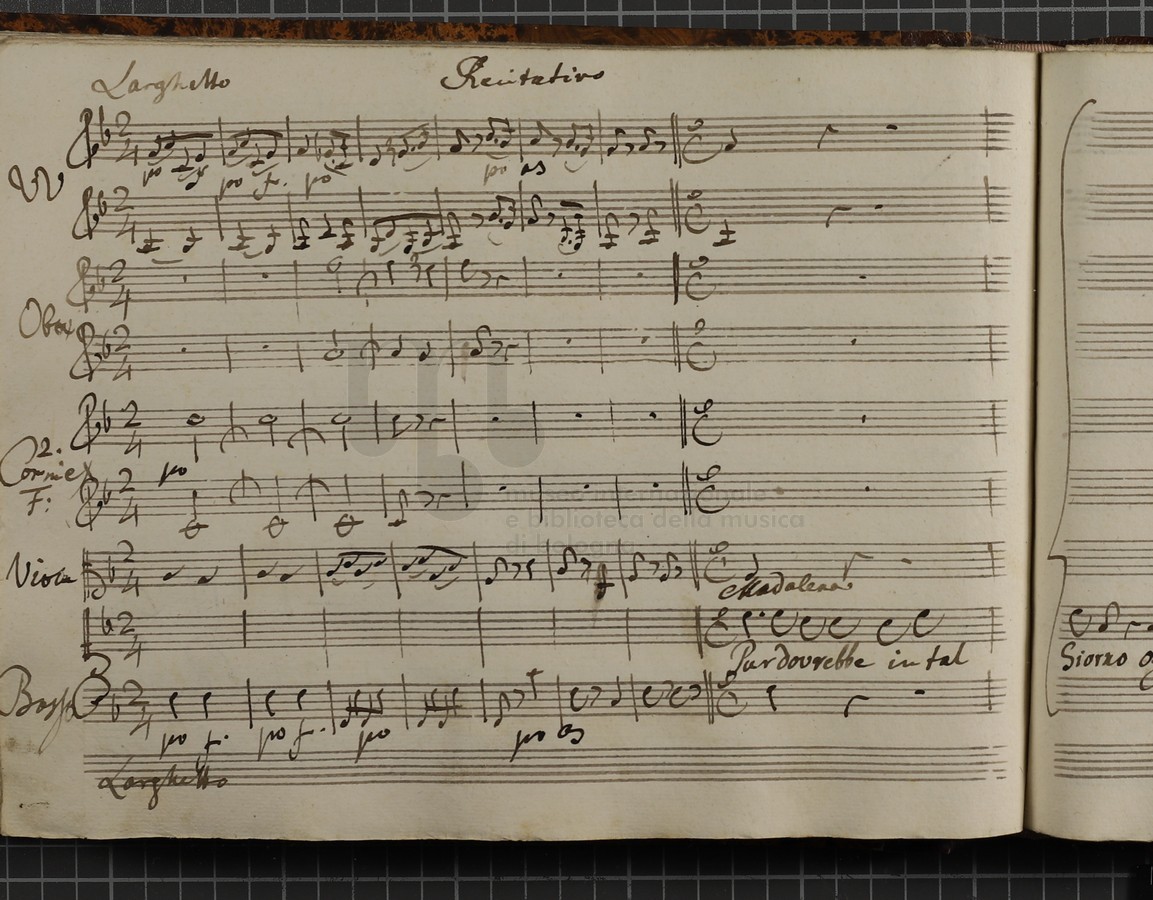 Larghetto Recitativo
VV
po f po f. po po as
Oboe
2.
Corni ex
F:
po
Viola
Madalena
Pur dovrebbe in tal
Giorno
Basso
po f. po f. po po as
Larghetto
museo internazionale
e biblioteca della musica
di bologna